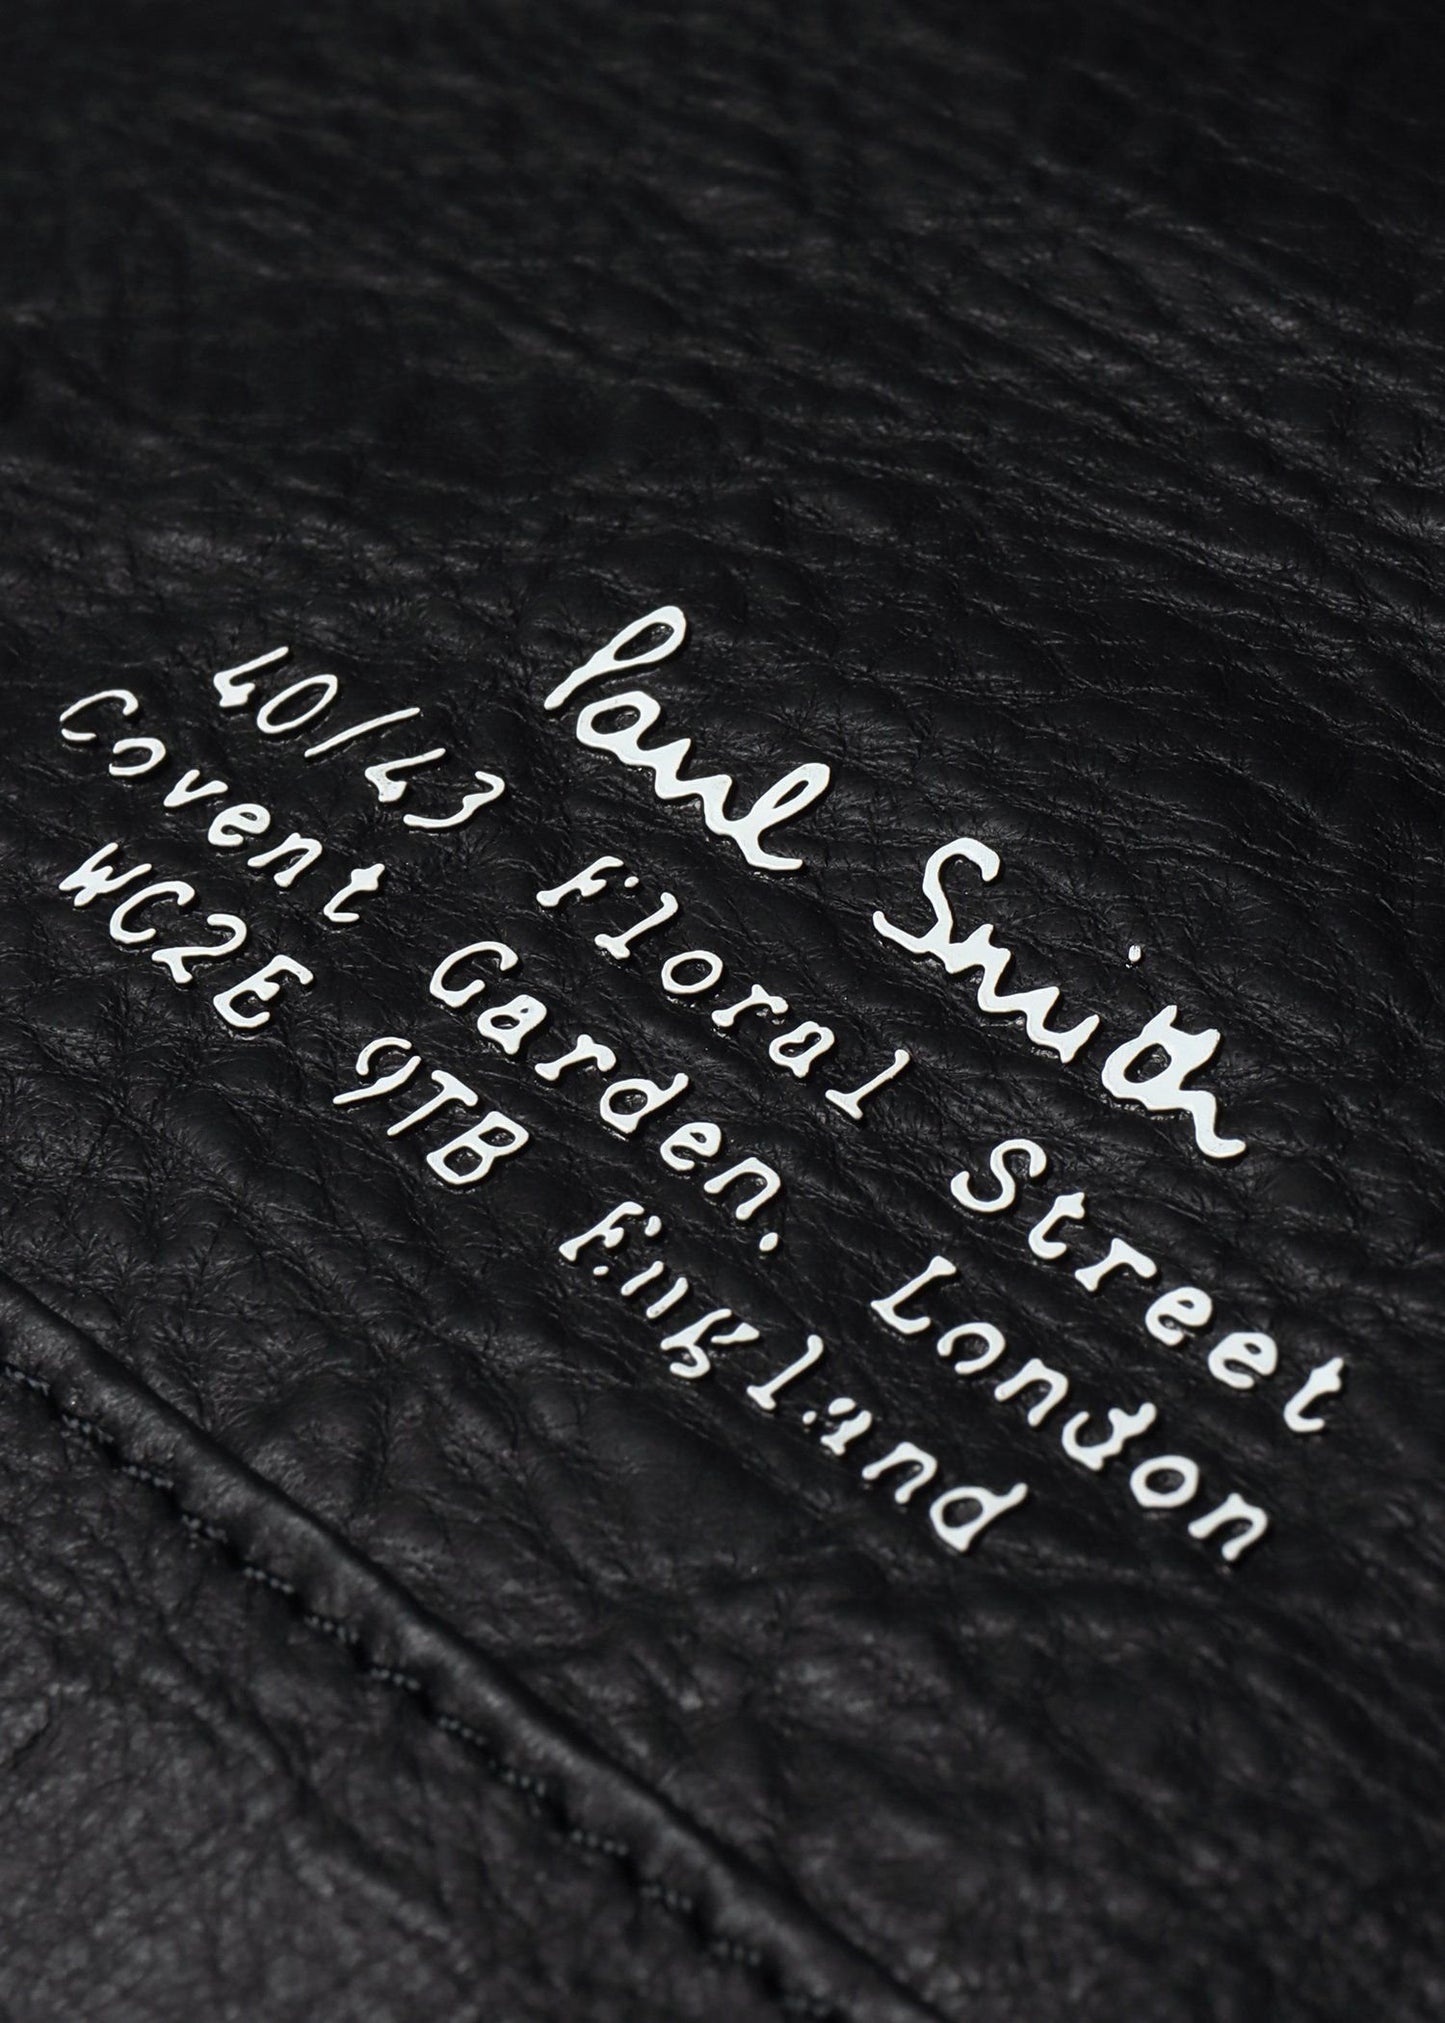 Paul Smith
40/43 Floral Street
Covent Garden. London
WC2E 9TB England